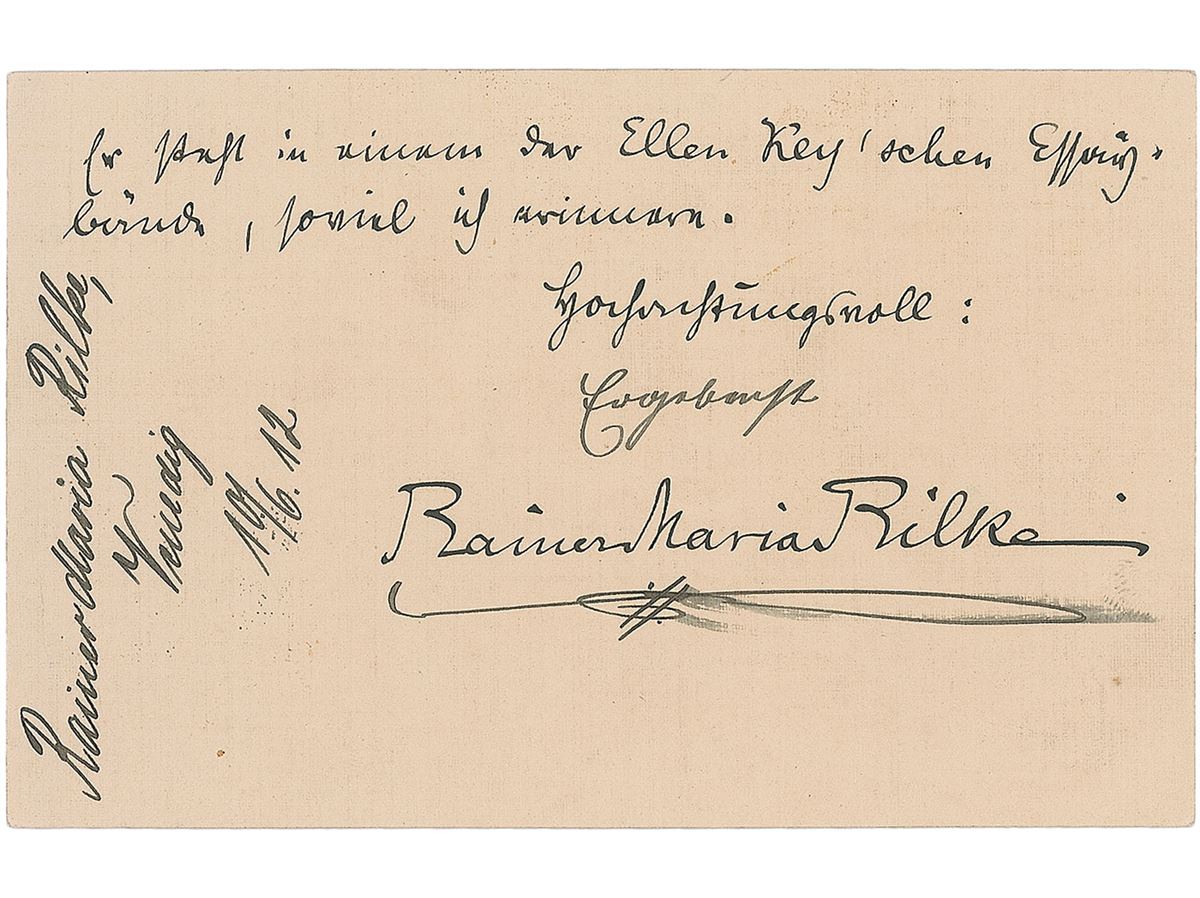 Er steht in einem der Ellen Key'schen Essay-
bände, soviel ich erinnere.
Hochachtungsvoll:
Ergebenst
Rainer Maria Rilke
Rainer Maria Rilke,
Venedig
19/6. 12